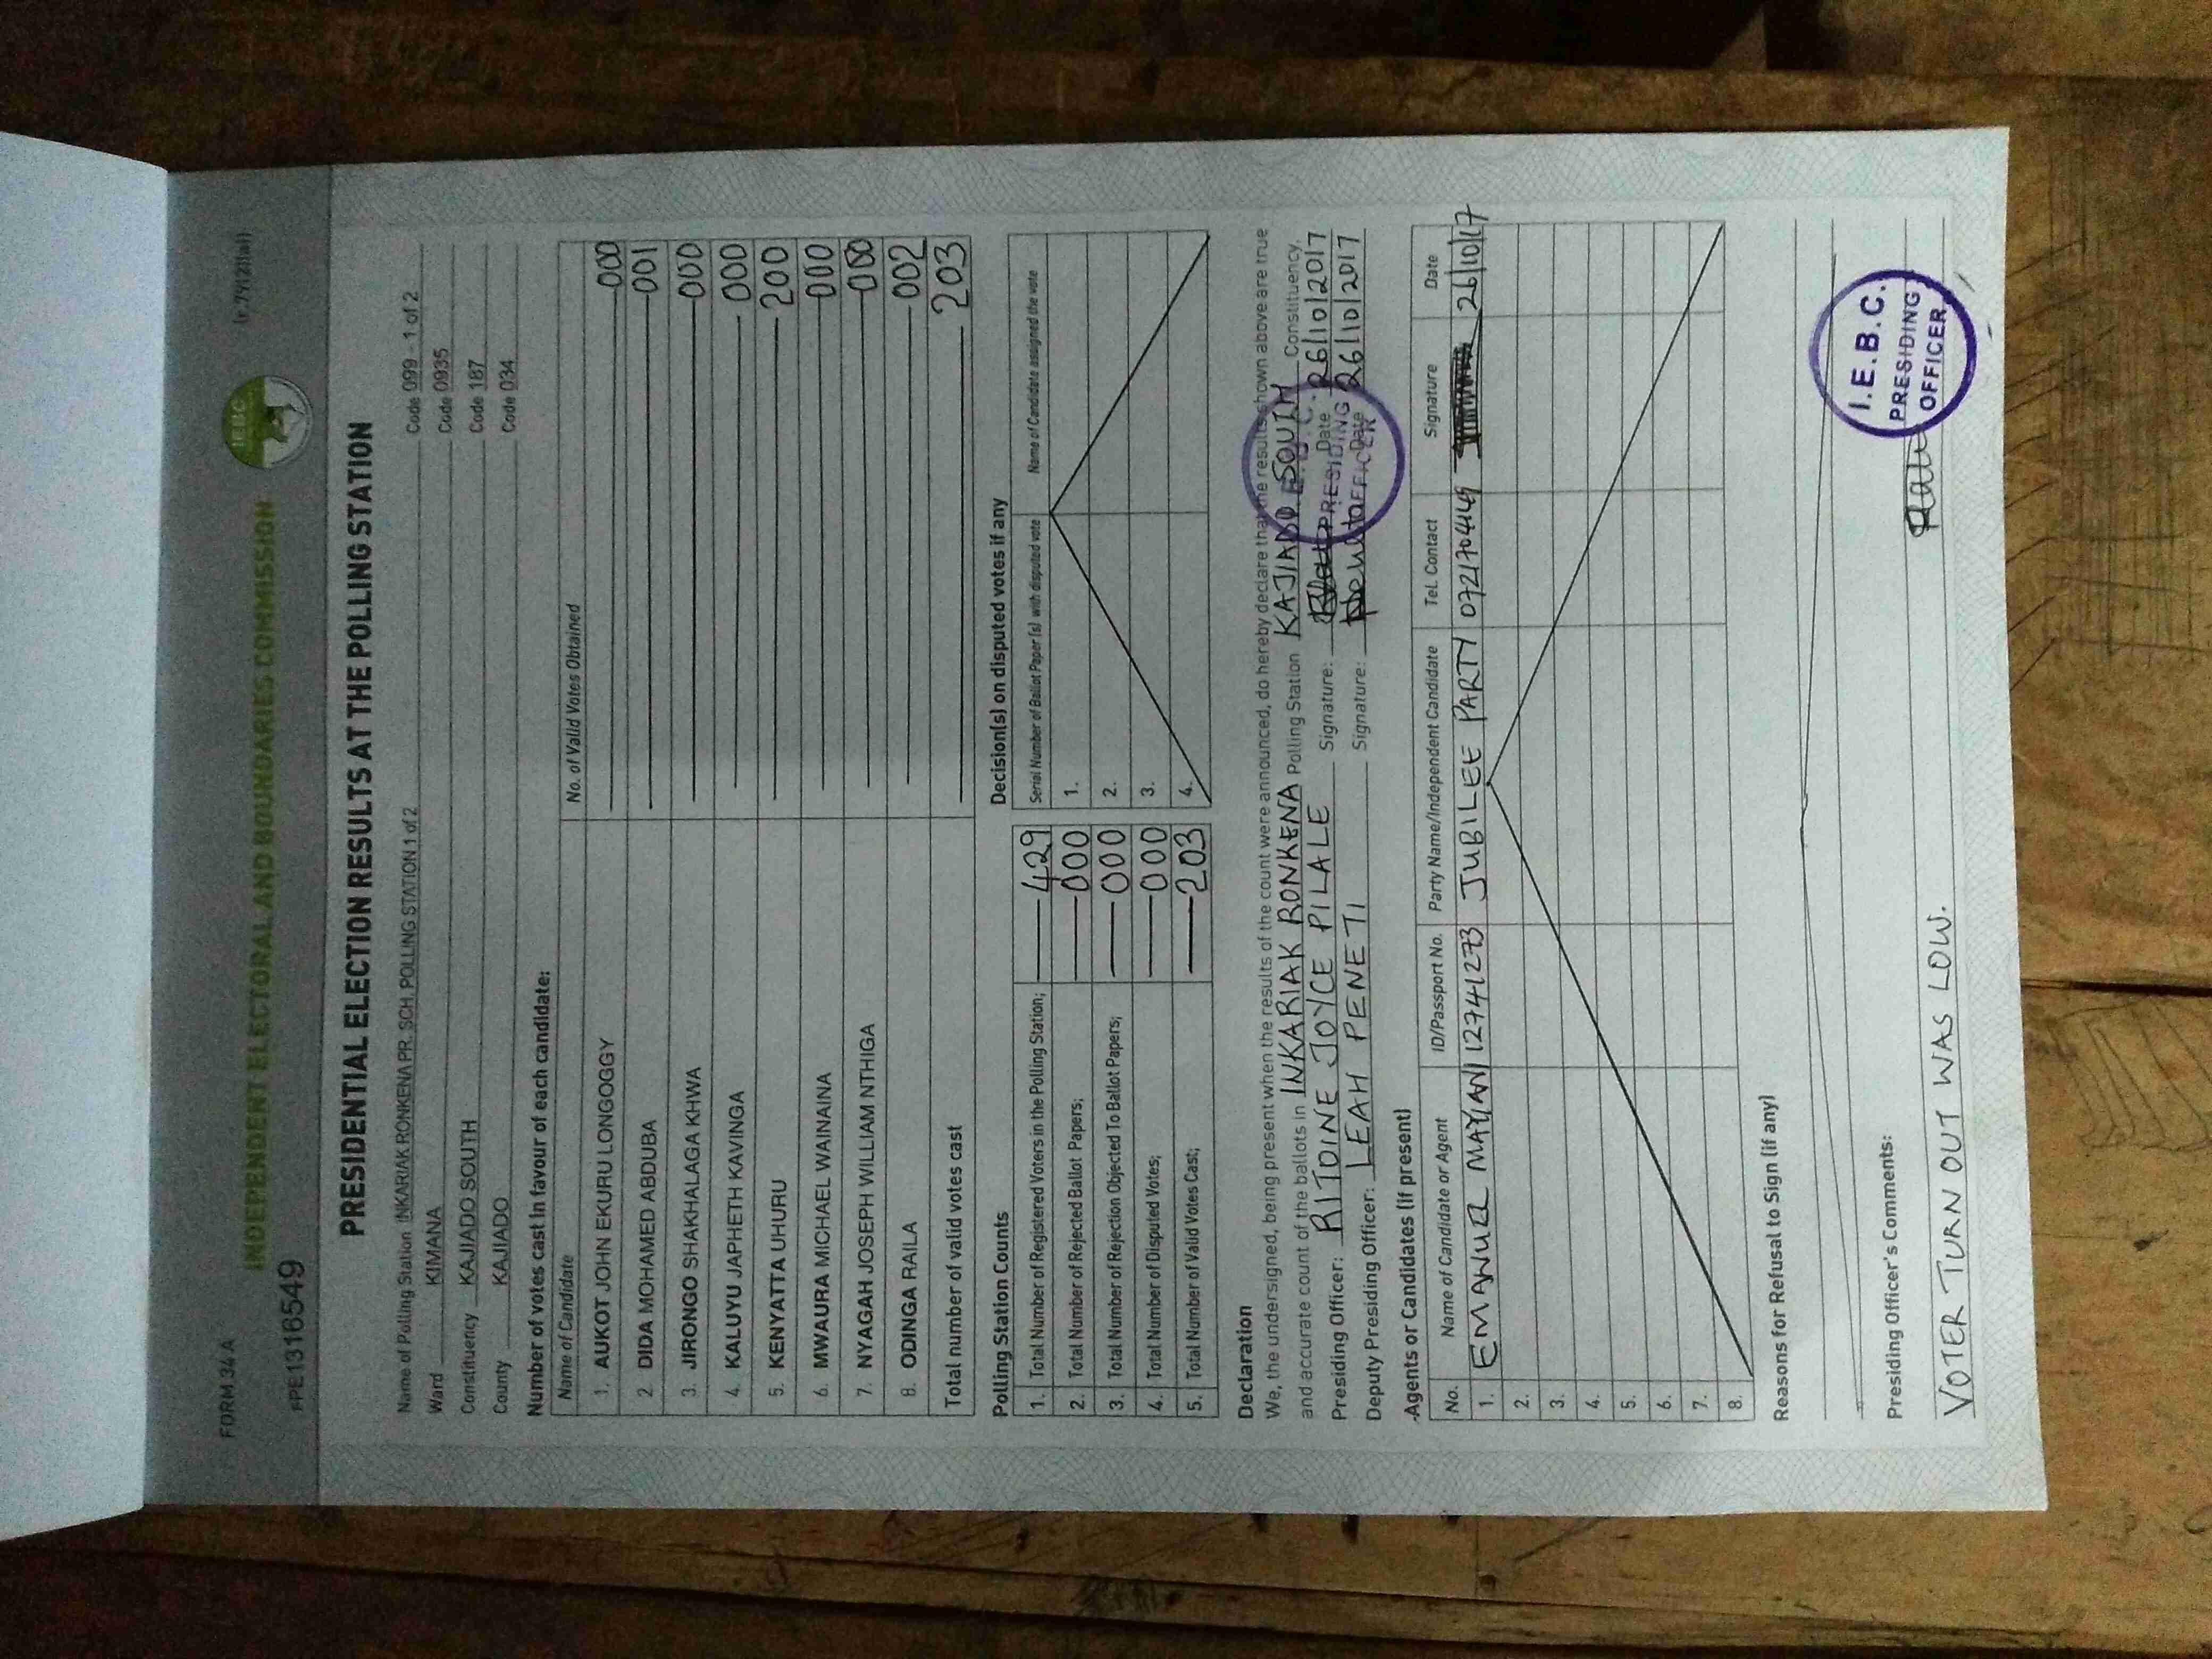 FORM 34 A
(r.79(2)(a))
INDEPENDENT ELECTORAL AND BOUNDARIES COMMISSION
IEBC
PRESIDENTIAL ELECTION RESULTS AT THE POLLING STATION
Name of Polling Station INKARIAK RONKENA PR. SCH. POLLING STATION 1 of 2 Code 099 - 1 of 2
Ward KIMANA Code 0935
Constituency KAJIADO SOUTH Code 187
County KAJIADO Code 034
Number of votes cast in favour of each candidate:
Name of Candidate No. of Valid Votes Obtained
1. AUKOT JOHN EKURU LONGOGGY 000
2 DIDA MOHAMED ABDUBA 001
3. JIRONGO SHAKHALAGA KHWA 000
4. KALUYU JAPHETH KAVINGA 000
5. KENYATTA UHURU 200
6. MWAURA MICHAEL WAINAINA 000
7. NYAGAH JOSEPH WILLIAM NTHIGA 000
8. ODINGA RAILA 002
Total number of valid votes cast 203
Polling Station Counts
1. Total Number of Registered Voters in the Polling Station; 429
2. Total Number of Rejected Ballot Papers; 000
3. Total Number of Rejection Objected To Ballot Papers; 000
4. Total Number of Disputed Votes; 000
5. Total Number of Valid Votes Cast; 203
Decision(s) on disputed votes if any
Serial Number of Ballot Paper (s) with disputed vote Name of Candidate assigned the vote
1.
2.
3.
4.
Declaration
We, the undersigned, being present when the results of the count were announced, do hereby declare that the results shown above are true
and accurate count of the ballots in INKARIAK RONKENA Polling Station KAJIADO SOUTH Constituency.
Presiding Officer: RITOINE JOYCE PILALE Signature: Date 26/10/2017
Deputy Presiding Officer: LEAH PENETI Signature: Date 26/10/2017
PRESIDING
OFFICER
Agents or Candidates (if present)
No. Name of Candidate or Agent ID/Passport No. Party Name/Independent Candidate Tel. Contact Signature Date
1. EMANUEL MAYIANI 12741273 JUBILEE PARTY 0721704449 26/10/17
2.
3.
4.
5.
6.
7.
8.
Reasons for Refusal to Sign (if any)
Presiding Officer's Comments:
VOTER TURN OUT WAS LOW.
I.E.B.C.
PRESIDING
OFFICER